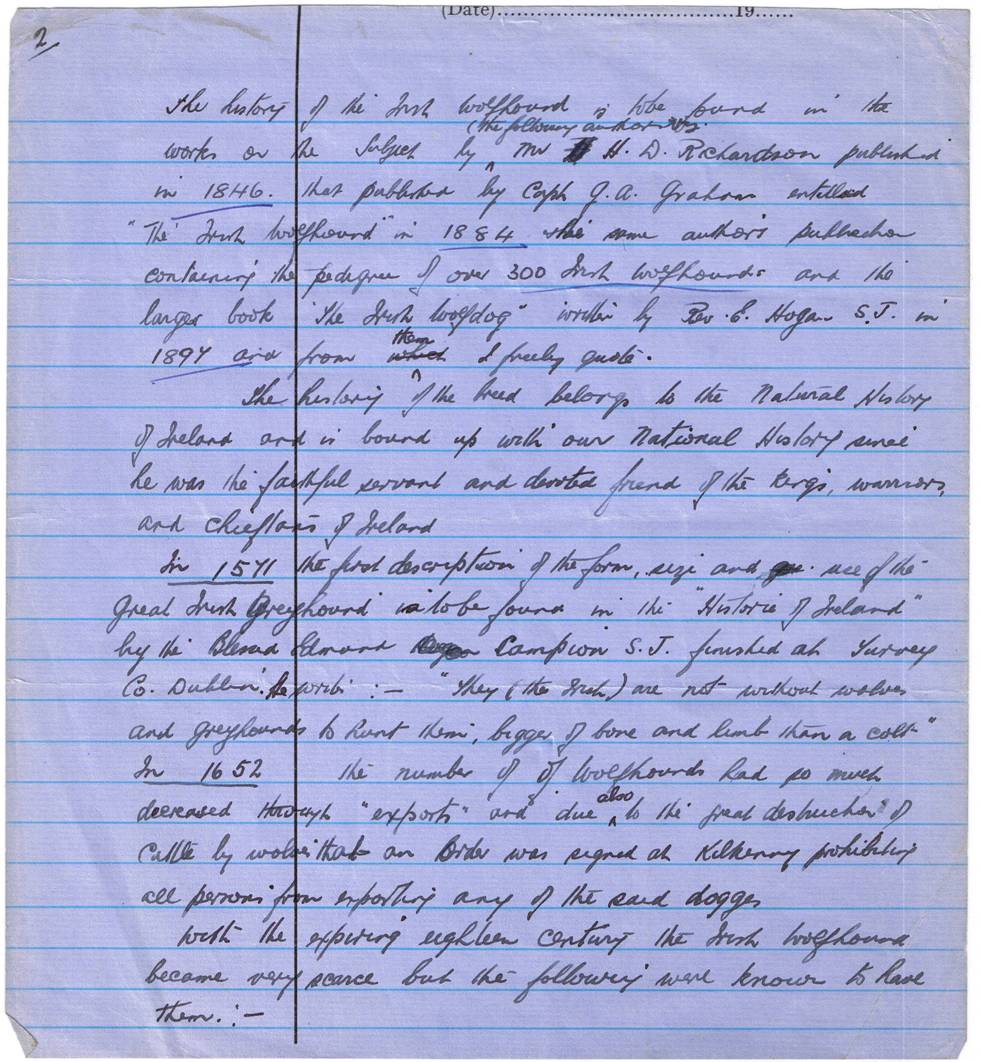 (Date)....................................19......
2
The history of the Irish Wolfhound is to be found in the
(the following authors Viz.
works on the Subject by Mr H. D. Richardson published
in 1846. that published by Capt J.A. Graham entitled
"The Irish Wolfhound" in 1884 the same author's publication
containing the pedigree of over 300 Irish Wolfhounds and the
larger book "The Irish Wolfdog" written by Rev. E. Hogan S.J. in
them
1897 and from which I freely quote.
The history of the breed belongs to the Natural History
of Ireland and is bound up with our National History since
he was the faithful servant and devoted friend of the Kings, warriors,
and Chieftans of Ireland
In 1571 the first description of the form, size and use of the
Great Irish Greyhound is to be found in the "Historie of Ireland"
by the Blessed Edmund Campion S.J. finished at Turvey
Co. Dublin. He writes :- "They (the Irish) are not without wolves
and greyhounds to hunt them, bigger of bone and limb than a colt"
In 1652 the number of of Wolfhounds had so much
also
decreased through "exports" and due to the "great destruction" of
Cattle by wolves that an Order was signed at Kilkenny prohibiting
all persons from exporting any of the said dogges
With the expiring eighteen century the Irish Wolfhound
became very scarce but the following were known to have
them. :-